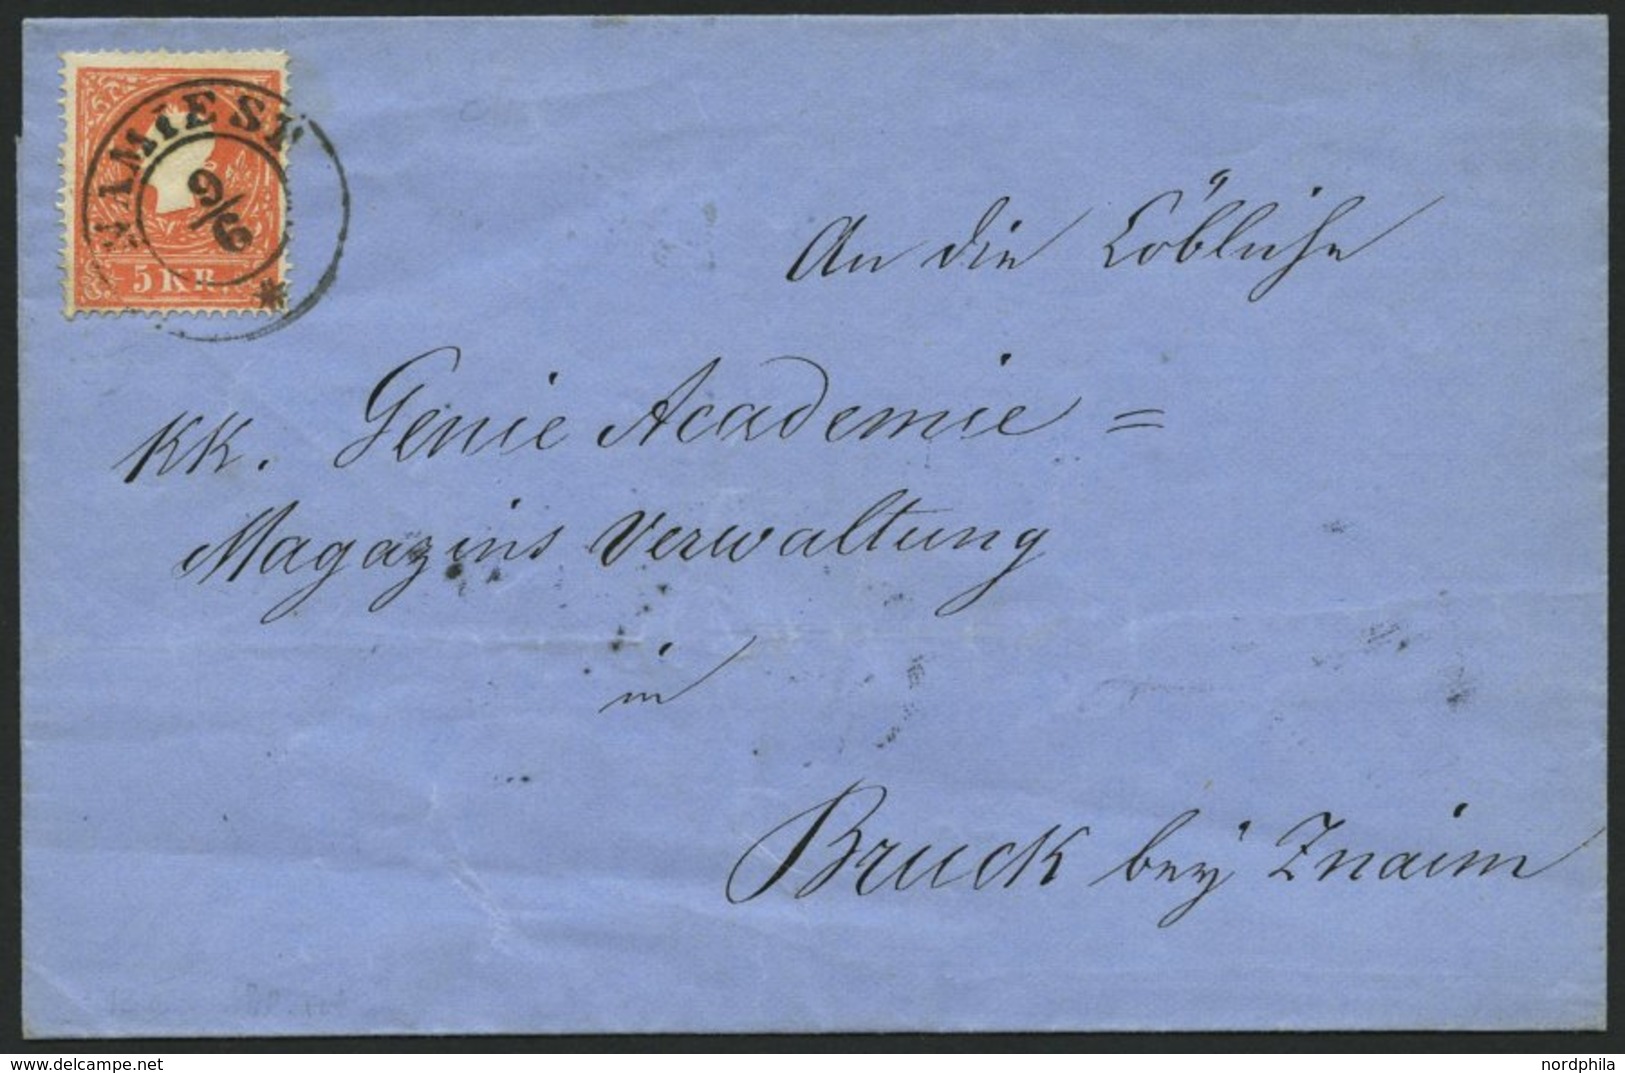 NAMIEST
9/6
5 KR.
An die Löbliche
KK. Genie Academie =
Magazins Verwaltung
in
Bruck bey Znaim
www.delcampe.net
nordphila